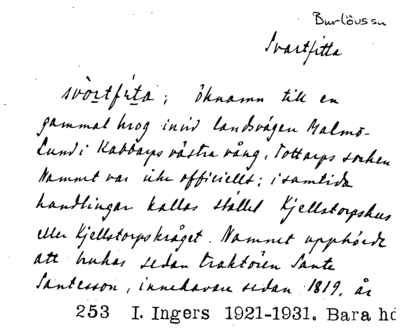 Burlövs sn
Svartfitta
svòrtfìta; öknamn till en
gammal krog invid landsvägen Malmö-
Lund i Kabbarps västra vång, Tottarps socken
Namnet var icke officiellt; i samtida
handlingar kallas stället Kjellstorpshus
eller Kjellstorpskråget. Namnet upphörde
att brukas sedan traktören Sante
Santesson, innehavare sedan 1819, år
253 I. Ingers 1921-1931. Bara hä